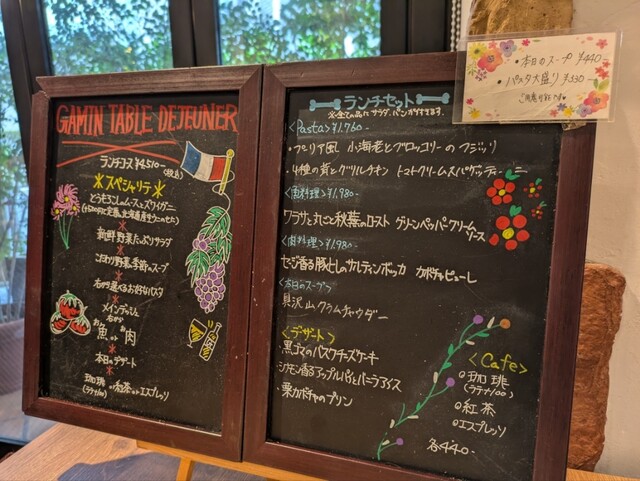 GAMIN TABLE DEJEUNER
ランチコース ¥4510-
(税込)
スペシャリテ
とうもろこしのムースとズワイガニ
新鮮野菜たっぷりサラダ
こだわり野菜の季節のスープ
右から選べるお好なパスタ
メインディッシュ
右から
お魚 or お肉
本日のデザート
珈琲 or 紅茶 or エスプレッソ
(ラテ+100)
ランチセット
※全ての品に サラダ、パンが付きます。
<Pasta> ¥1.760-
・プーリア風 小海老とブロッコリーの フジッリ
・4種の茸とグリルチキン トマトクリームスパゲッティーニ
<魚料理> ¥1.980-
ワラサと丸ごと秋茄のロースト グリーンペッパークリーム
ソース
<肉料理> ¥1.980-
セージ香る豚ヒレのサルティンボッカ カボチャピューレ
<本日のスープ>
具沢山クラムチャウダー
<デザート>
・黒ゴマのバスクチーズケーキ
・シナモン香るアップルパイとバニラアイス
・栗カボチャのプリン
<Cafe>
珈琲
(ラテ+100)
紅茶
エスプレッソ
各440-
・本日のスープ ¥440-
・パスタ大盛り ¥330-